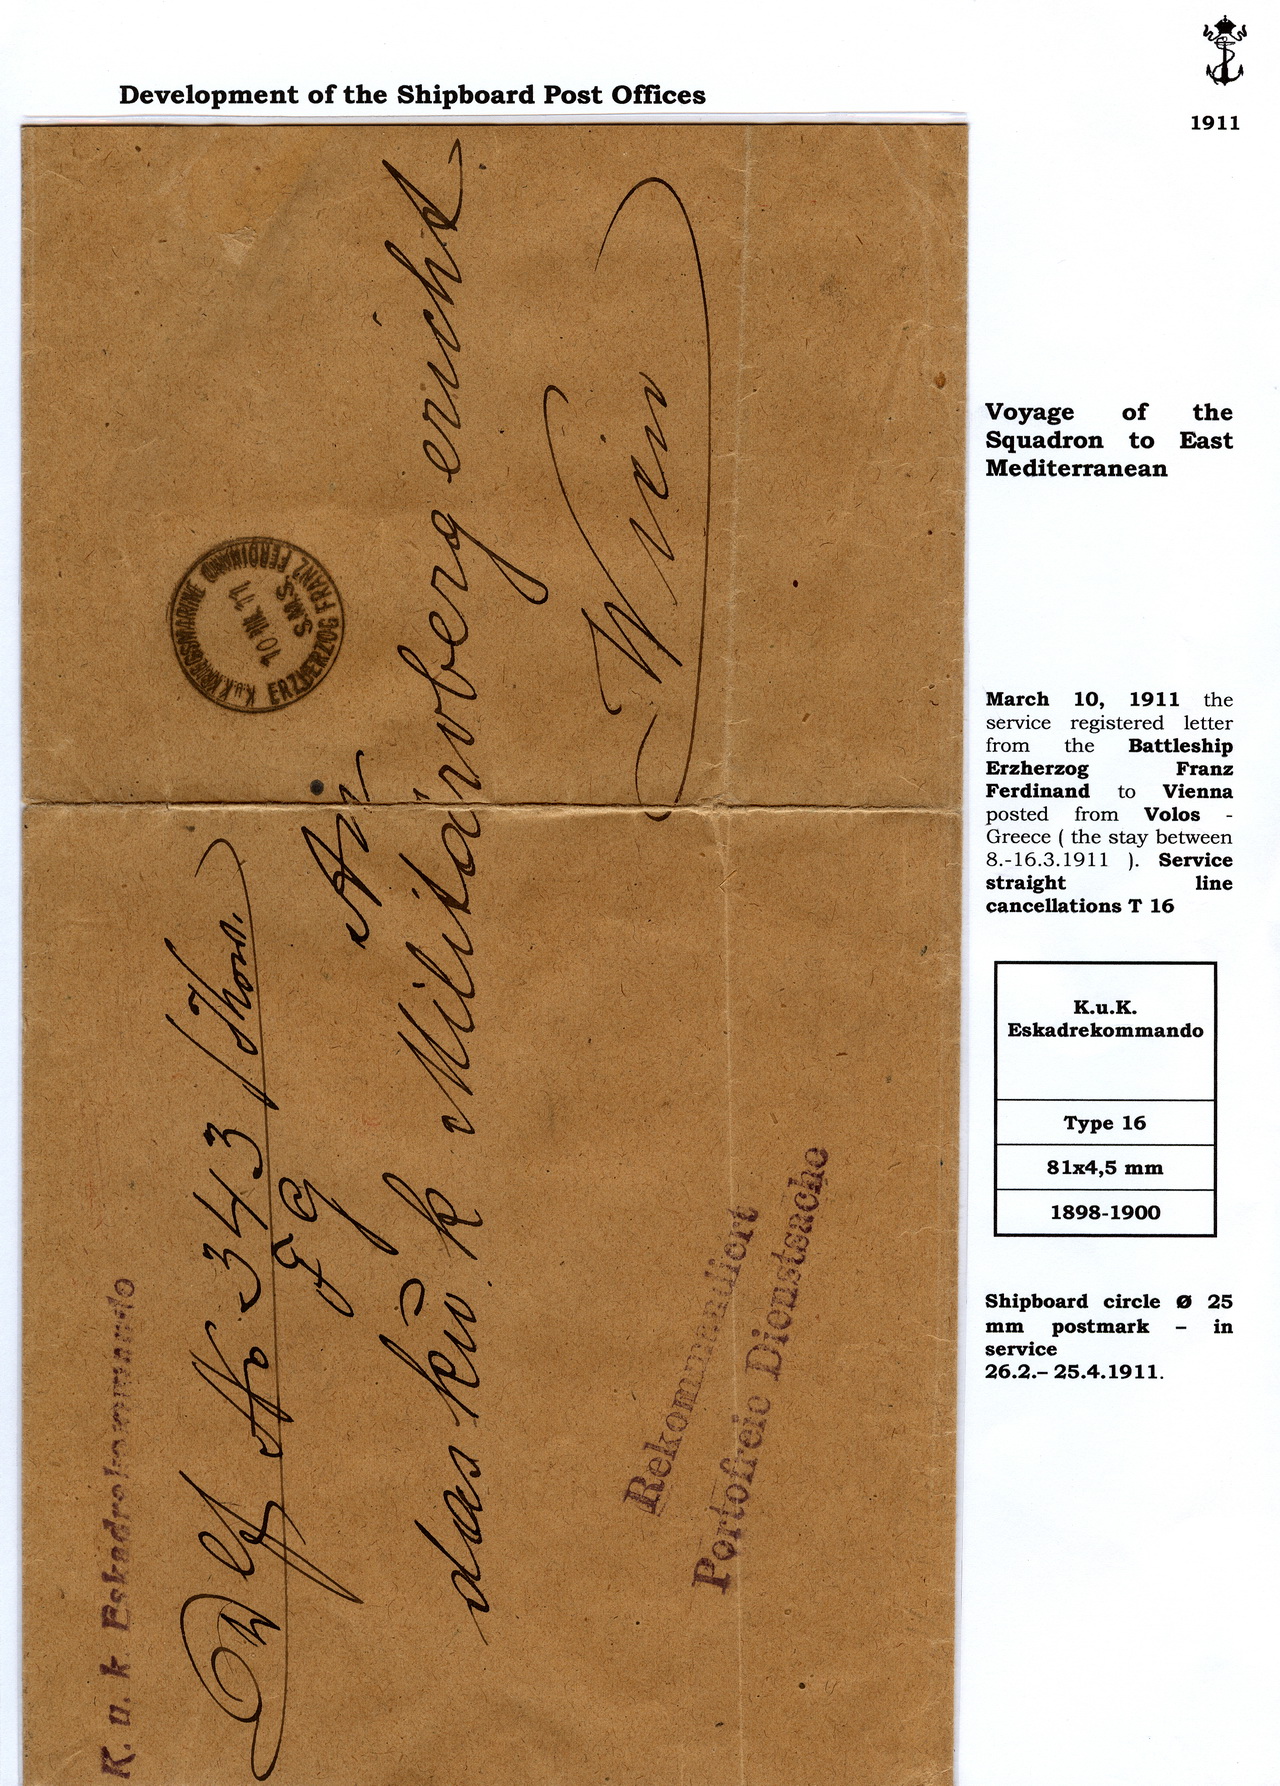 Development of the Shipboard Post Offices
1911
K. u. k. Eskadrekommando
No 343
An
das k u. k Militärobergericht
Wien
K.u.K. KRIEGSMARINE
10 III. 11
S.M.S.
ERZHERZOG FRANZ FERDINAND
Rekommandiert
Portofreie Dienstsache
Voyage of the
Squadron to East
Mediterranean
March 10, 1911 the
service registered letter
from the Battleship
Erzherzog Franz
Ferdinand to Vienna
posted from Volos -
Greece ( the stay between
8.-16.3.1911 ). Service
straight line
cancellations T 16
K.u.K.
Eskadrekommando
Type 16
81x4,5 mm
1898-1900
Shipboard circle Ø 25
mm postmark – in
service
26.2.– 25.4.1911.